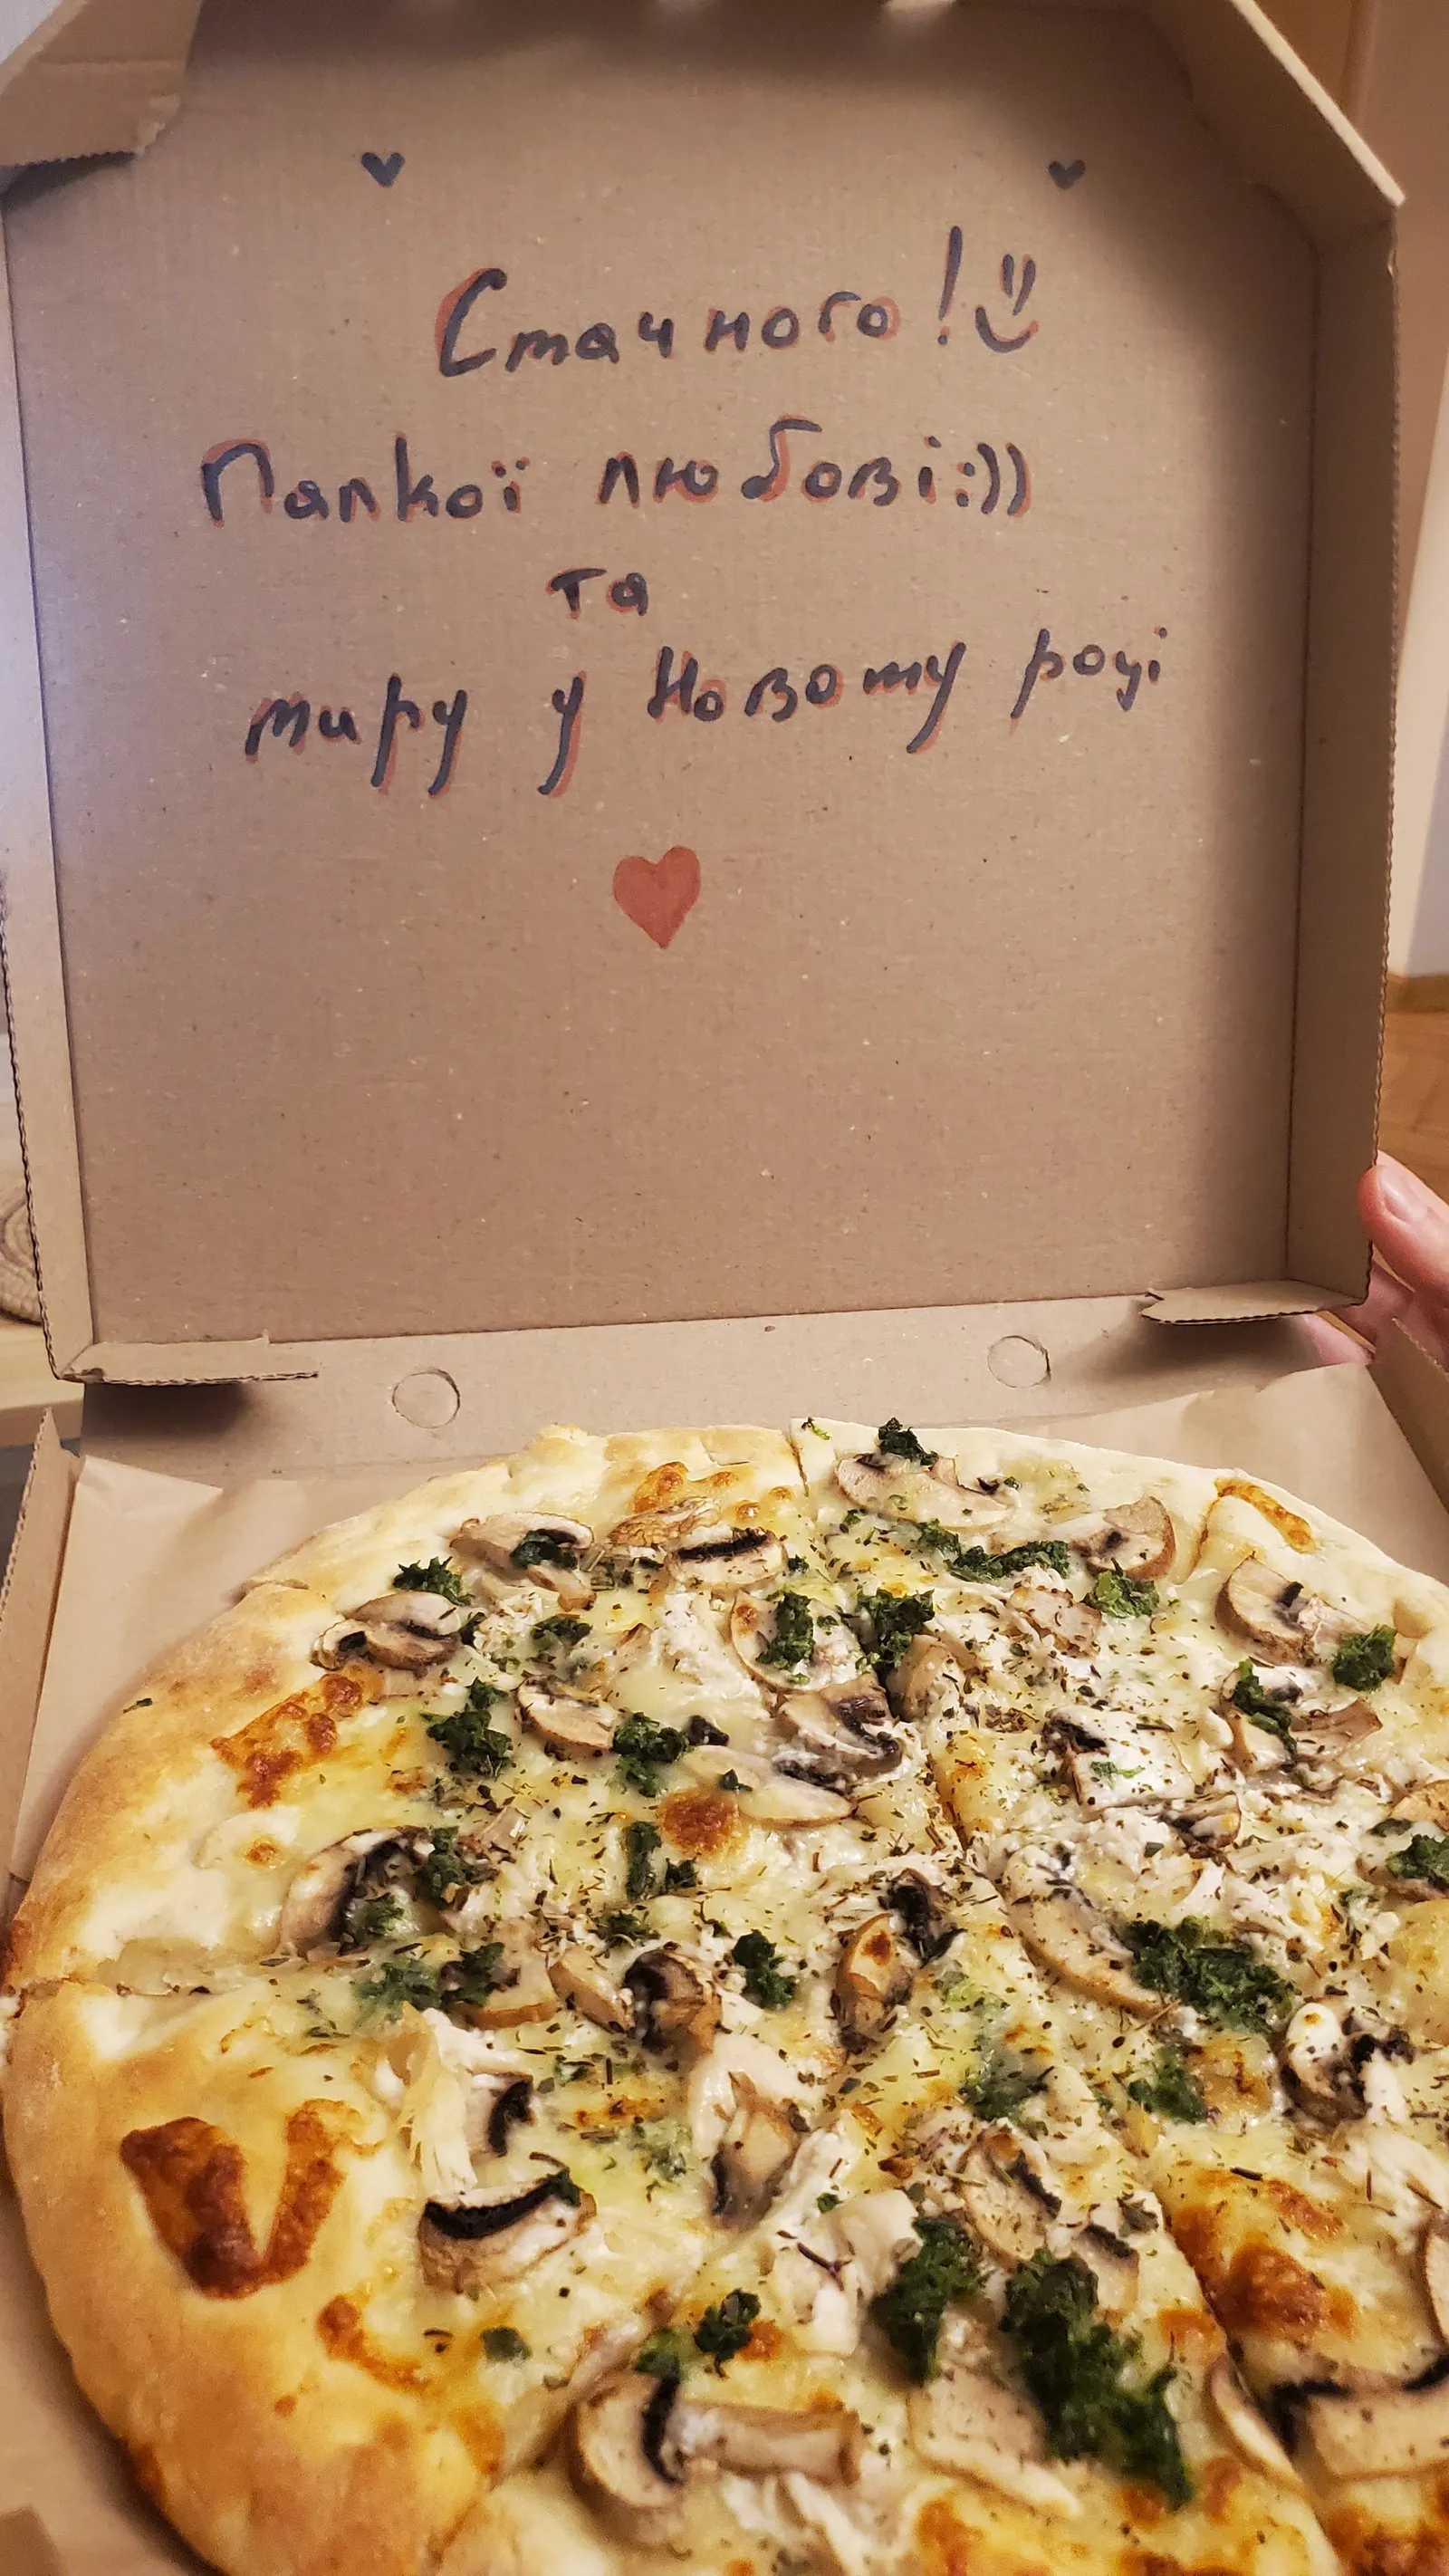 Смачного!
Палкої любові:))
та
миру у Новому році